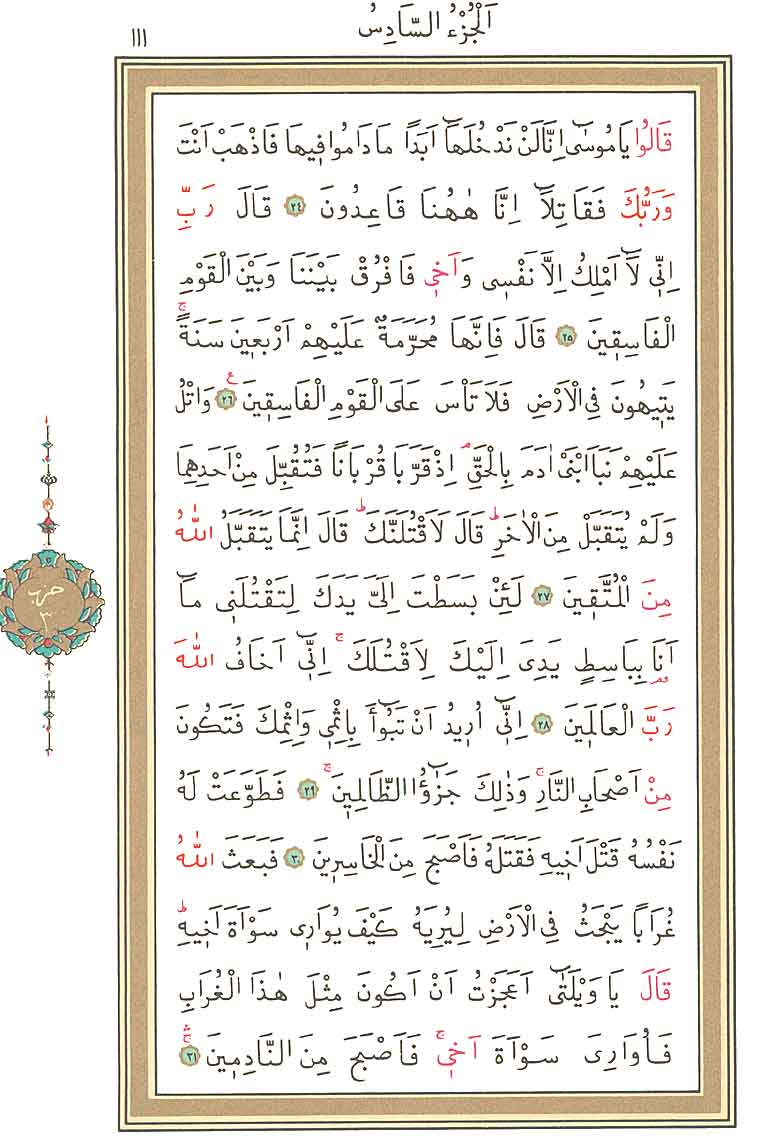 اَلْجُزْءُ السَّادِسُ
١١١
قَالُوا يَا مُوسٰٓى اِنَّا لَنْ نَدْخُلَهَٓا اَبَدًا مَا دَامُوا ف۪يهَا فَاذْهَبْ اَنْتَ
وَرَبُّكَ فَقَاتِلَٓا اِنَّا هٰهُنَا قَاعِدُونَ ٢٤ قَالَ رَبِّ
اِنّ۪ي لَٓا اَمْلِكُ اِلَّا نَفْس۪ي وَاَخ۪ي فَافْرُقْ بَيْنَنَا وَبَيْنَ الْقَوْمِ
الْفَاسِق۪ينَ ٢٥ قَالَ فَاِنَّهَا مُحَرَّمَةٌ عَلَيْهِمْ اَرْبَع۪ينَ سَنَةًۚ
يَت۪يهُونَ فِي الْاَرْضِ فَلَا تَأْسَ عَلَى الْقَوْمِ الْفَاسِق۪ينَ ع ٢٦ وَاتْلُ
عَلَيْهِمْ نَبَاَ ابْنَيْ اٰدَمَ بِالْحَقِّۢ اِذْ قَرَّبَا قُرْبَانًا فَتُقُبِّلَ مِنْ اَحَدِهِمَا
وَلَمْ يُتَقَبَّلْ مِنَ الْاٰخَرِۜ قَالَ لَاَقْتُلَنَّكَۜ قَالَ اِنَّمَا يَتَقَبَّلُ اللّٰهُ
مِنَ الْمُتَّق۪ينَ ٢٧ لَئِنْ بَسَطْتَ اِلَيَّ يَدَكَ لِتَقْتُلَن۪ي مَٓا
اَنَا۬ بِبَاسِطٍ يَدِيَ اِلَيْكَ لِاَقْتُلَكَۚ اِنّ۪ٓي اَخَافُ اللّٰهَ
رَبَّ الْعَالَم۪ينَ ٢٨ اِنّ۪ٓي اُر۪يدُ اَنْ تَبُٓوأَ بِاِثْم۪ي وَاِثْمِكَ فَتَكُونَ
مِنْ اَصْحَابِ النَّارِۚ وَذٰلِكَ جَزٰٓؤُا الظَّالِم۪ينَۚ ٢٩ فَطَوَّعَتْ لَهُ
نَفْسُهُ قَتْلَ اَخ۪يهِ فَقَتَلَهُ فَاَصْبَحَ مِنَ الْخَاسِر۪ينَ ٣٠ فَبَعَثَ اللّٰهُ
غُرَابًا يَبْحَثُ فِي الْاَرْضِ لِيُرِيَهُ كَيْفَ يُوَار۪ي سَوْاَةَ اَخ۪يهِۜ
قَالَ يَا وَيْلَتٰٓى اَعَجَزْتُ اَنْ اَكُونَ مِثْلَ هٰذَا الْغُرَابِ
فَاُوَارِيَ سَوْاَةَ اَخ۪يۚ فَاَصْبَحَ مِنَ النَّادِم۪ينَۚۛ ٣١
حزب
٣